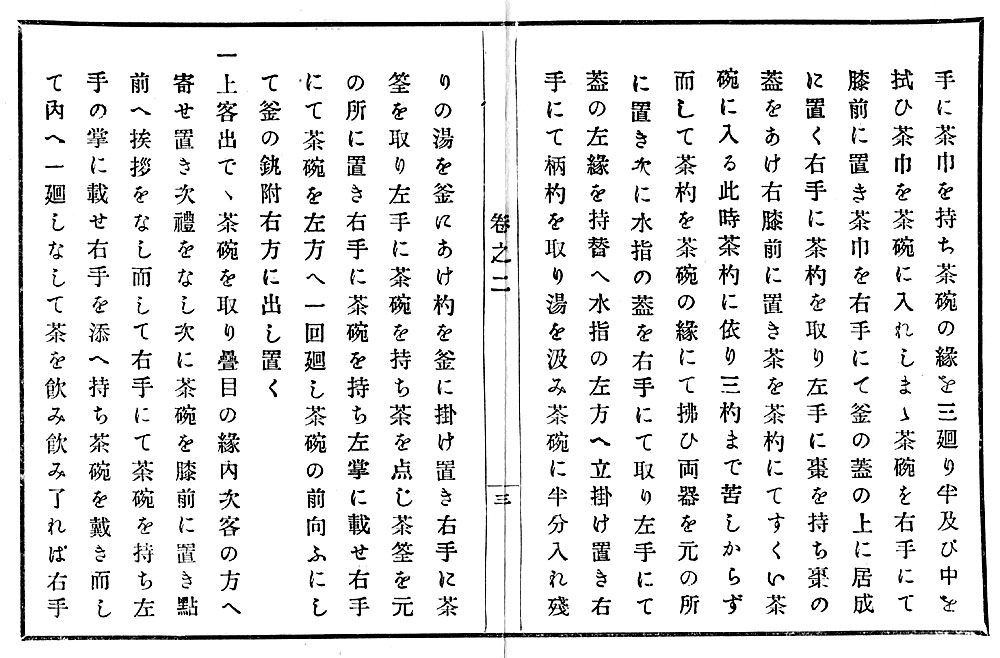 手に茶巾を持ち茶碗の縁を三廻り半及び中を
拭ひ茶巾を茶碗に入れしまゝ茶碗を右手にて
膝前に置き茶巾を右手にて釜の蓋の上に居成
に置く右手に茶杓を取り左手に棗を持ち棗の
蓋をあけ右膝前に置き茶を茶杓にてすくい茶
碗に入る此時茶杓に依り三杓まで苦しからず
而して茶杓を茶碗の縁にて拂ひ両器を元の所
に置き次に水指の蓋を右手にて取り左手にて
蓋の左縁を持替へ水指の左方へ立掛け置き右
手にて柄杓を取り湯を汲み茶碗に半分入れ殘
卷之二
三
りの湯を釜にあけ杓を釜に掛け置き右手に茶
筌を取り左手に茶碗を持ち茶を点じ茶筌を元
の所に置き右手に茶碗を持ち左掌に載せ右手
にて茶碗を左方へ一回廻し茶碗の前向ふにし
て釜の銚附右方に出し置く
一上客出でヽ茶碗を取り疊目の緣內次客の方へ
寄せ置き次禮をなし次に茶碗を膝前に置き點
前へ挨拶をなし而して右手にて茶碗を持ち左
手の掌に載せ右手を添へ持ち茶碗を戴き而し
て內へ一廻しなして茶を飮み飮み了れば右手